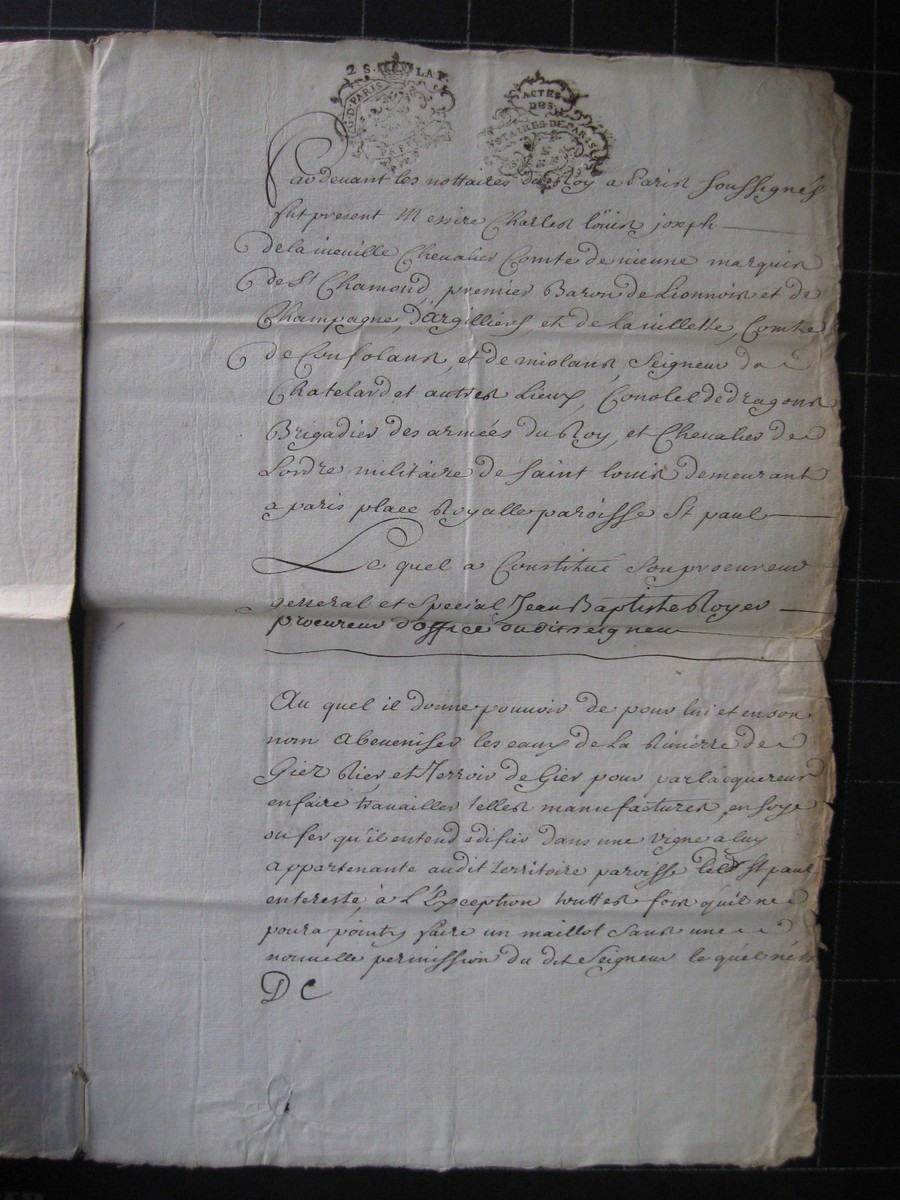 2 S. LA F.
G. D. PARIS
ACTES
DES
NOTAIRES DE PARIS
Pardevant les nottaires du Roy a Paris soussignés
fut present Messire Charles loüis joseph
de la vieuille Chevalier Comte de vienne marquis
de St Chamond, premier Baron de Lionnois et de
Champagne, D'argilliers et de la villette, Comte
de Consolans, et de miolans, Seigneur de
Chatelard et autres Lieux, Conolel de dragons
Brigadier des armées du Roy, et Chevalier de
Lordre militaire de saint louis demeurant
a paris place Royalle paroisse St paul
Le quel a Constitué son procureur
general et special Jean Baptiste Royer
procureur d'office dudit seigneur
Au quel il donne pouvoir de pour lui et en son
nom abeveniser les eaux de la Rivierre de
Giez Rier, et Terroir de Gier pour par lacquereur
en faire travailler telles manufactures, en soye
ou fer qu'il entend edifier dans une vigne a luy
appartenante audit territoire paroisse de St paul
en tereste, à L'Exception touttes fois qu'il ne
poura point y faire un maillot sans une
nouvelle permission du dit Seigneur le quel
D C